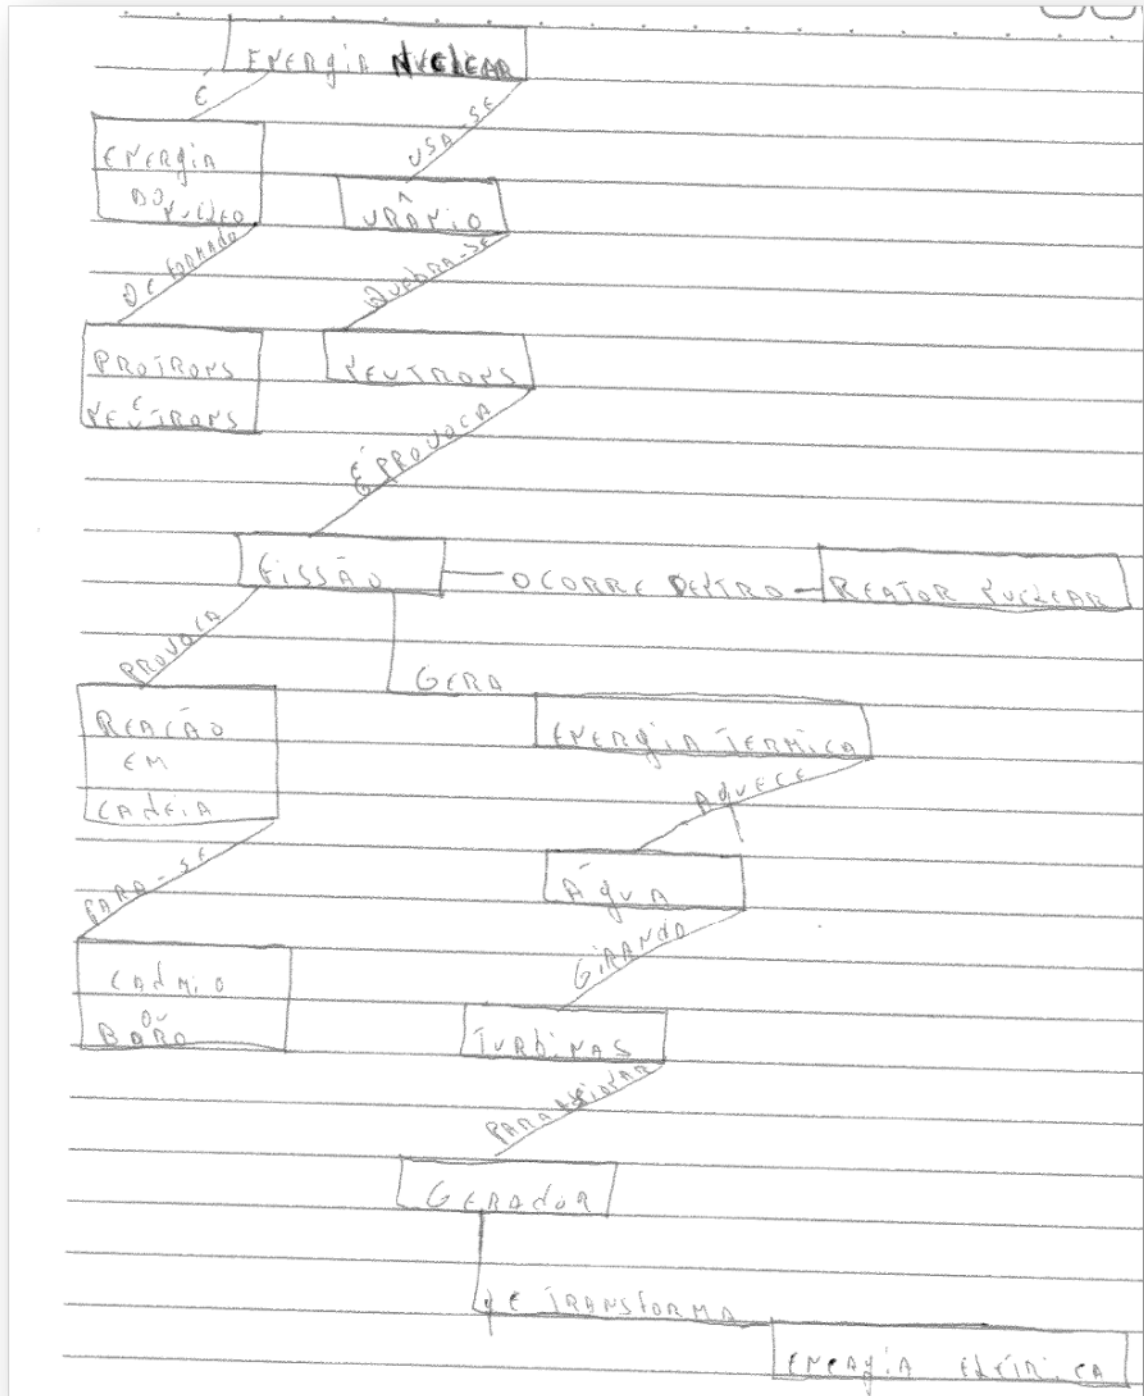 ENERgiA NUCLEAR
É
USA-SE
ENERgiA
DO NÚCLEO
URÂNiO
DE FORMADO
QUEBRA-SE
PROTRONS
E
NEUTRONS
NEUTRONS
E PROVOCA
FiSSÃO
OCORRE DENTRO
REATOR NUCLEAR
PROVOCA
GERA
REAÇÃO
EM
CAdEiA
ENERgiA TERMiCA
AqUECE
PARA-SE
ÁgUA
GiRANdO
CAdMiO
OU
BORO
TURbiNAS
PARA
GERAdOR
qE TRANSfORMA
ENERgiA ELETRiCA